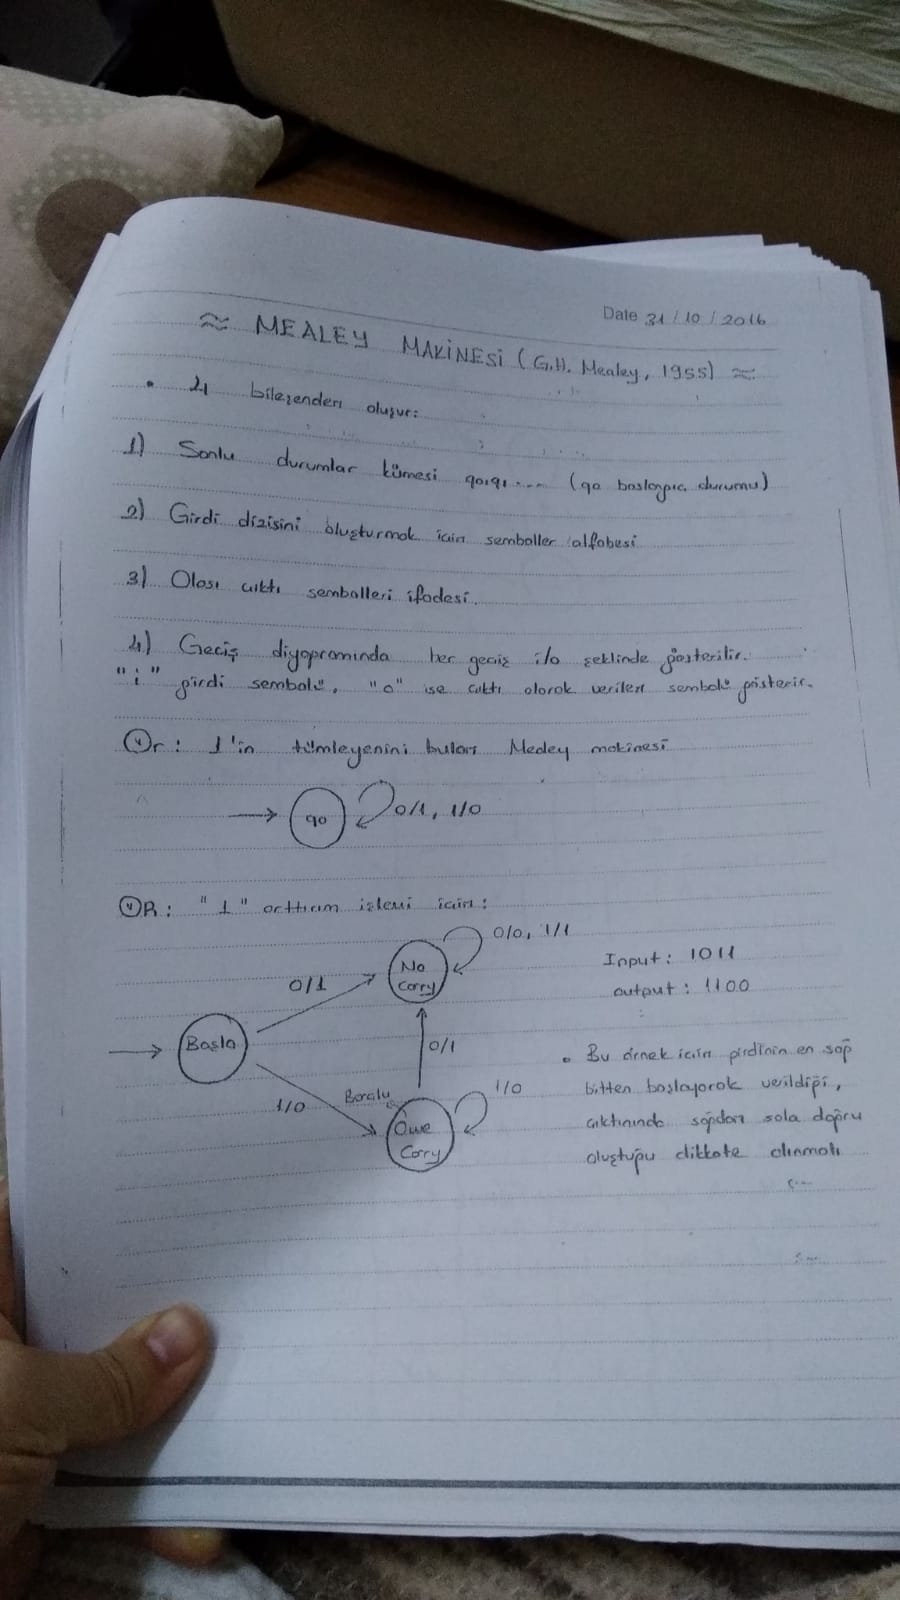 Date 31/10/2016
≈ MEALEY MAKİNESİ (G.H. Mealey, 1955) ≈
• 4 bileşenden oluşur:
1) Sonlu durumlar kümesi q0,q1.... (q0 başlangıç durumu)
2) Girdi dizisini oluşturmak için semboller alfabesi
3) Olası çıktı sembolleri ifadesi.
4) Geçiş diyagramında her geçiş i/o şeklinde gösterilir.
"i" girdi sembolü, "o" ise çıktı olarak verilen sembolü gösterir.
Ör: 1'in tümleyenini bulan Mealey makinesi
q0
0/1, 1/0
ÖR: "1" arttırım işlemi için:
0/0, 1/1
No
Carry
Input: 1011
0/1
output: 1100
Başla
0/1
• Bu örnek için girdinin en sağ
1/0
bitten başlayarak verildiği,
1/0
Owe
Carry
çıktınında sağdan sola doğru
oluştuğu dikkate alınmalı